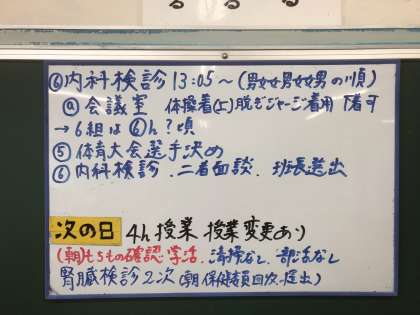 ⑥内科検診 13:05〜(男女女男女女男の順)
@会議室 体操着(上)脱ぎジャージ着用 下着可
→6組は⑥h?頃
⑤体育大会選手決め
⑥内科検診、二者面談、班長選出
次の日 4h授業 授業変更あり
(朝)もちもの確認 学活、清掃なし、部活なし
腎臓検診2次(朝、保健委員回収、提出)